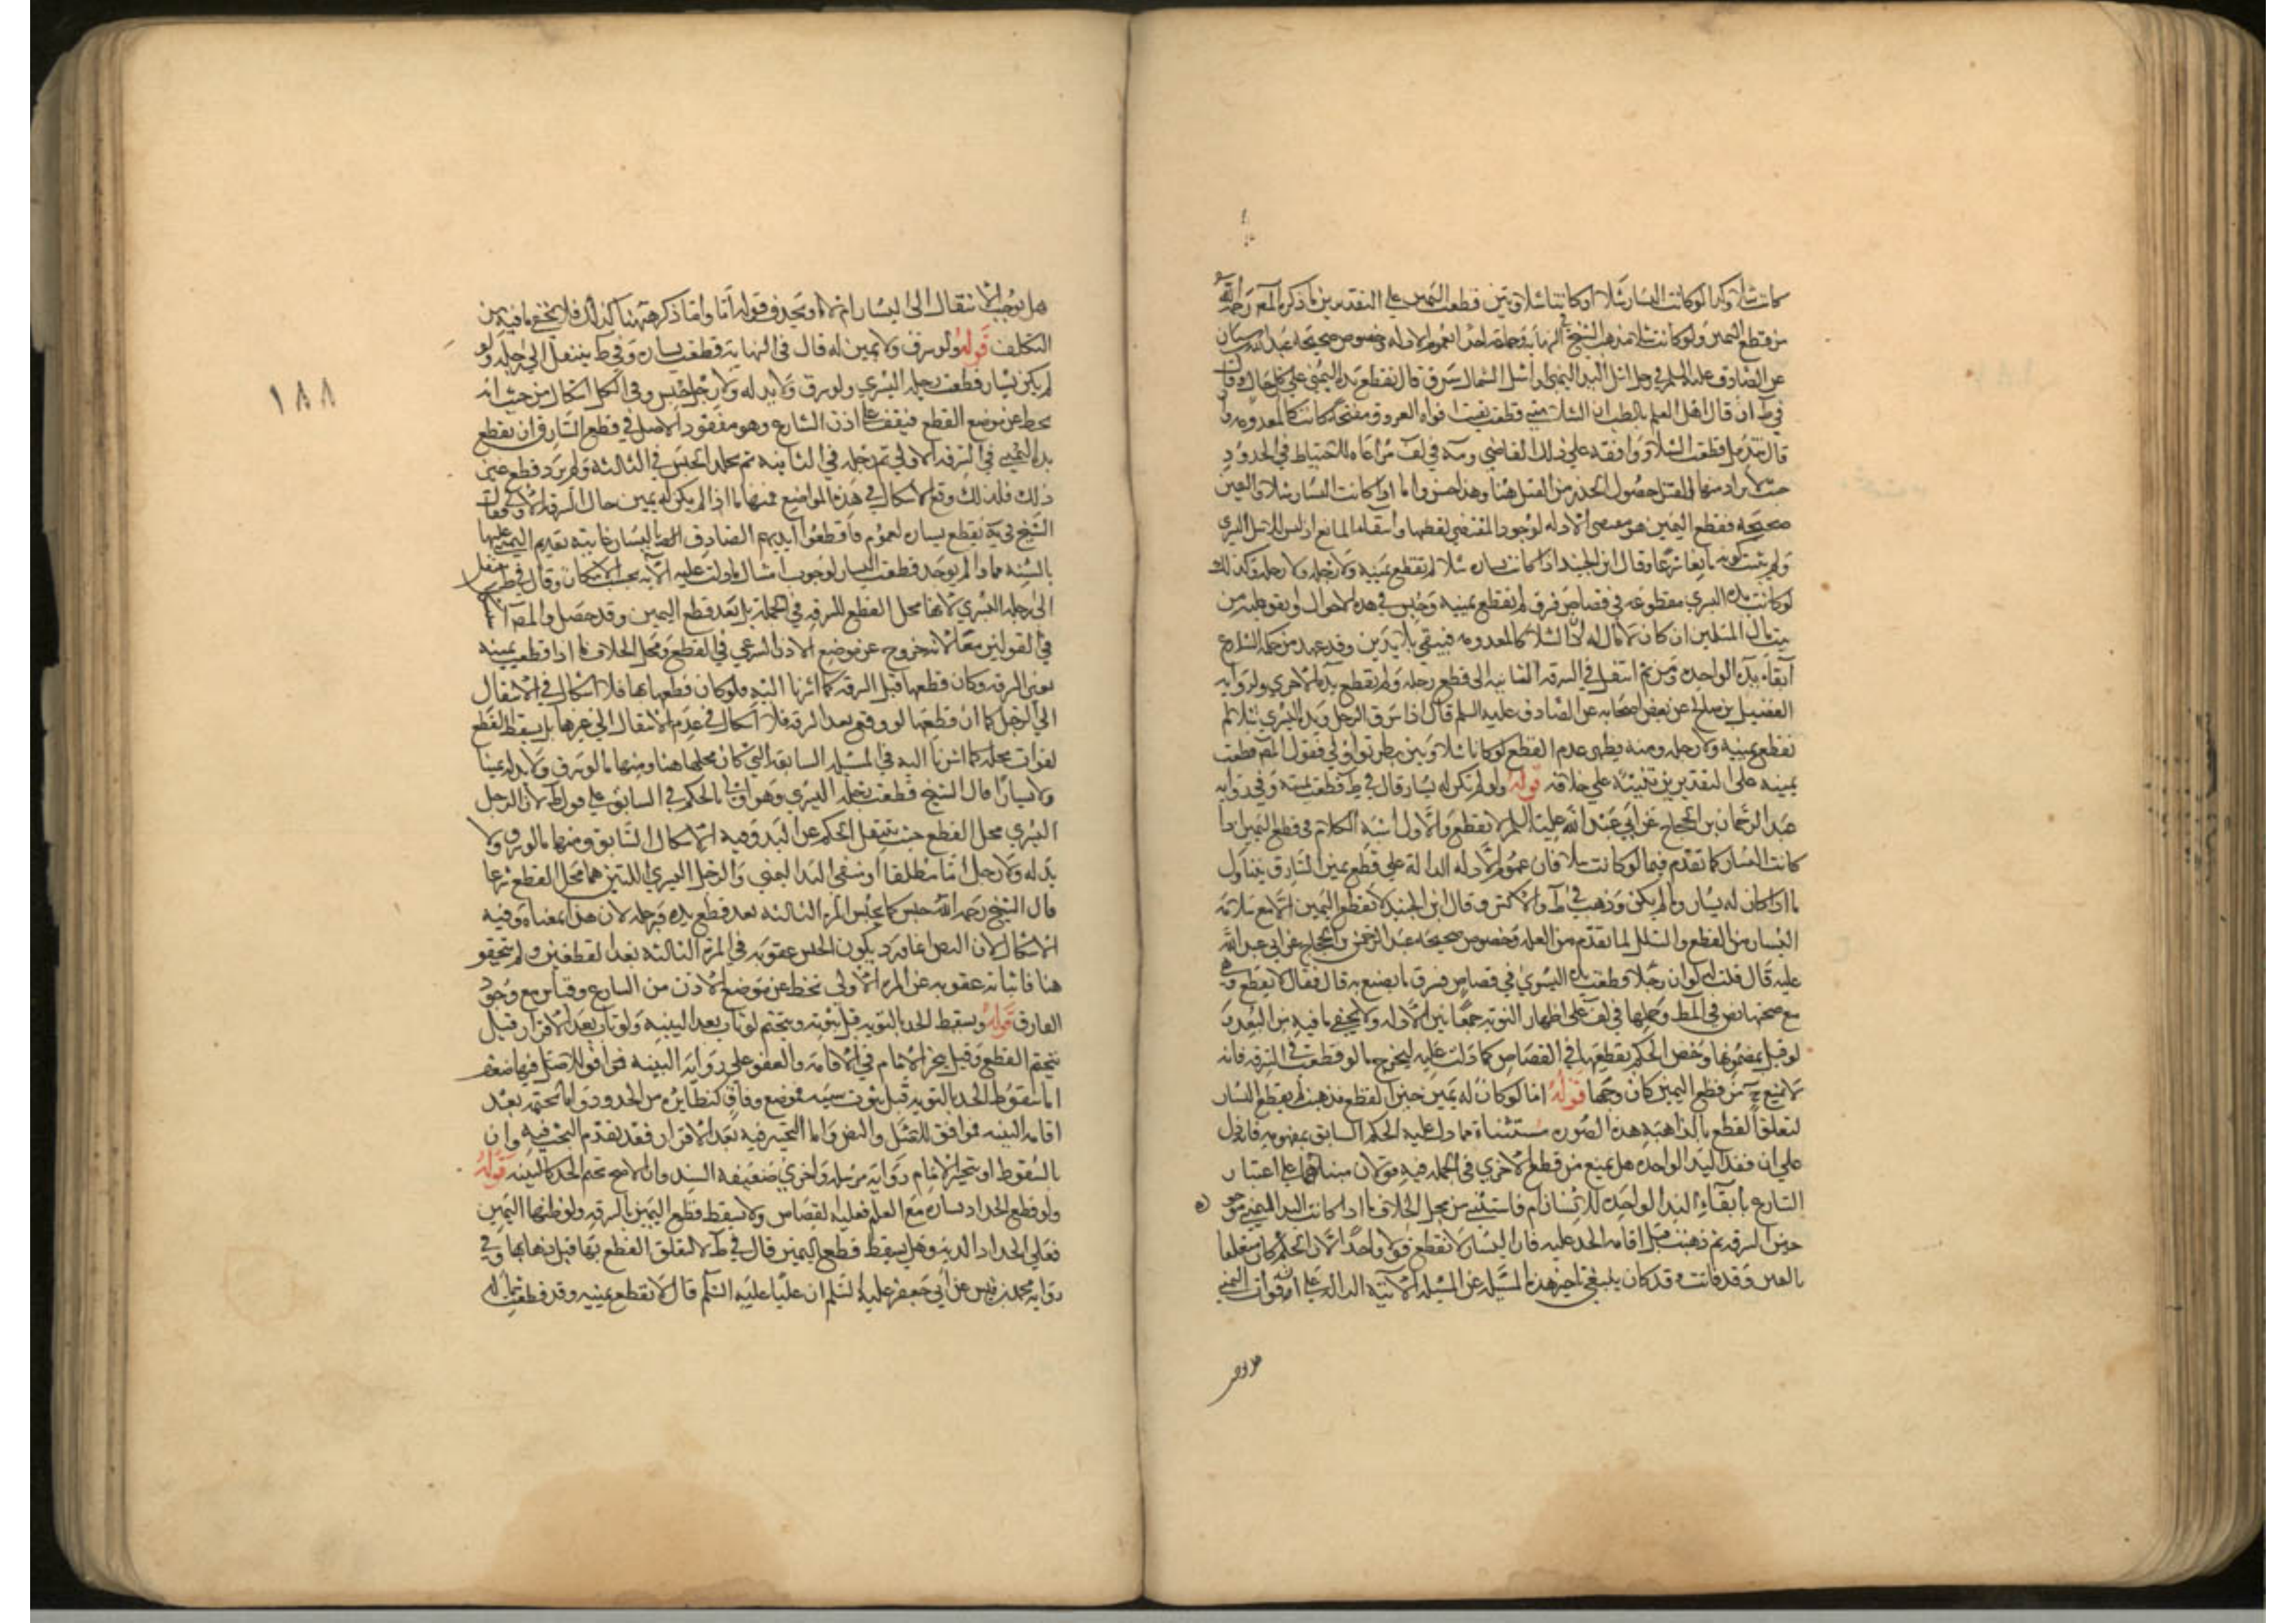 كانت شلاء وكذا لو كانت اليسار شلاء او كانتا شلاوتين قطعت اليمين على التقديرين ما ذكره المصر رحمه الله
من قطع اليمين ولو كانت شلاء مذهب الشيخ في النهاية وجماعة احد لعموم الادلة وخصوص صحيحة عبد الله بن سنان
عن الصادق عليه السلم في رجل اشل اليد اليمنى او اشل الشمال سرق قال تقطع يده اليمنى على كل حال وقال
في ط ان قال اهل العلم بالطب ان الشلاء متى قطعت بقيت افواه العروق مفتحة كانت كالمعدومة وان
قالوا تندمل قطعت الشلاء ووافقه على ذلك القاضي ومة في لف مراعاه للاحتياط في الحدود
حيث لا يراد منها القتل حصول الحذر من القتل هنا وهذا حسن واما اذا كانت اليسار شلاء واليمين
صحيحة فقطع اليمين هو مقتضى الادلة لوجود المقتضي لقطعها وانتفاء المانع اذ ليس الا شلل اليسرى
ولم يثبت كونه مانعا شرعا وقال ابن الجنيد اذا كانت يساره شلاء لم تقطع يمينه ولا رجله وكذلك
لو كانت يده اليسرى مقطوعه في قصاص فسرق لم تقطع يمينه وحبس في هذه الاحوال وينفق عليه من
بيت مال المسلمين ان كان لا مال له لان الشلاء كالمعدومه فيبقى بلا يدين وقد عهد من حكمة الشارع
ابقاء يده الواحده ومن ثم انتقل في السرقه الثانيه الى قطع رجله ولم تقطع يده الاخرى ولرواية
المفضل بن صالح عن بعض اصحابه عن الصادق عليه السلم قال اذا سرق الرجل ويده اليسرى شلاء لم
تقطع يمينه ولا رجله ومنه يظهر عدم القطع لو كانتا شلاوين بطريق اولى فقول المصر قطعت
يمينه على التقديرين تنبيه على خلافه قوله ولو لم تكن له يسار قال في ط قطعت يمينه وفي رواية
عبد الرحمان بن الحجاج عن ابي عبد الله عليه السلم لا تقطع والاول اشبه الكلام في قطع اليمين اذا
كانت اليسار كما تقدم فيما لو كانت شلاء فان عموم الادله الدالة على قطع يمين السارق يتناول
ما اذا كان له يسار وما لم يكن وذهب في ط والاكثر وقال ابن الجنيد لا تقطع اليمين الا مع سلامة
اليسار من القطع والشلل لما تقدم من العله وخصوص صحيحة عبد الرحمن بن الحجاج عن ابي عبد الله
عليه قال قلت له لو ان رجلا قطعت يده اليسرى في قصاص فسرق ما يصنع به قال فقال لا يقطع
مع صحتها نص في المط وحملها في لف على اظهار التوبه جمعا بين الادله ولا يخفى ما فيه من البعد و
لو قيل بمضمونها وخص الحكم بقطعها في القصاص كما دلت عليه ليخرج ما لو قطعت في السرقه فانه
لا يمنع ح من قطع اليمين كان وجها قوله اما لو كان له يمين حين القطع فذهبت لم يقطع اليسار
لتعلق القطع بالذاهبه هذه الصوره مستثناة مما دل عليه الحكم السابق بمفهومه فانه دل
على ان فقد اليد الواحده هل يمنع من قطع الاخرى في الجمله فيه قولان مبناهما على اعتبار
الشارع بابقاء اليد الواحده للانسان ام فاستثنى من محل الخلاف ما اذا كانت اليد اليمنى موجوده
حين السرقه ثم ذهبت قبل اقامه الحد عليه فان اليسار لا تقطع قولا واحدا لان الحكم كان متعلقا
باليمين وقد فاتت وقد كان ينبغي تاخير هذه المسئله عن المسئله الآتية الدالة على ان فوات اليمنى
هل يوجب الانتقال الى اليسار ام لا ويحذف قوله اما واما ذكر هنا كذلك فلا يخفى ما فيه من
التكلف قوله ولو سرق ولا يمين له قال في النهاية قطعت يساره وفي ط ينتقل الى رجله ولو
لم يكن يسار قطعت رجله اليسرى ولو سرق ولا يد له ولا رجل حبس وفي الكل اشكال من حيث انه
تخط عن موضع القطع فيقف على اذن الشارع وهو مفقود الاصل في قطع السارق ان تقطع
يده اليمنى في السرقه الاولى ثم رجله في الثانيه ثم تخليد الحبس في الثالثه ولم يرد قطع غير
ذلك فلذلك وقع الاشكال في هذه المواضع فمنها ما اذا لم يكن له يمين حال السرقه الاولى فقال
الشيخ في ية تقطع يساره لعموم فاقطعوا ايديهم الصادق اليسار غايته تقديم اليمين عليها
بالسنه فاذا لم توجد قطعت اليسار لوجوب امتثال ما دلت عليه الآيه بحسب الامكان وقال في ط ينتقل
الى رجله اليسرى لانها محل القطع للسرقه في الجملة بل بعد قطع اليمين وقد حصل والمصر
في القولين معا لانه خروج عن موضع الاذن الشرعي في القطع ومحل الخلاف ما اذا قطعت يمينه
بغير السرقه وكان قطعها قبل السرقه كما اشرنا اليه فلو كان قطعها بها فلا اشكال في الانتقال
الى الرجل كما ان قطعها لو وقع بعد السرقه فلا اشكال في عدم الانتقال الى غيرها بل يسقط القطع
لفوات محله كما اشرنا اليه في المسئله السابقة التي كان محلها هنا ومنها ما لو سرق ولا يد له يمينا
ولا يسارا قال الشيخ قطعت رجله اليسرى وهو اولى بالحكم في السابق على قول ط لان الرجل
اليسرى محل القطع حيث ينتقل الحكم عن اليد وفيه الاشكال السابق ومنها ما لو سرق ولا
يد له ولا رجل اما مطلقا او منتفي اليد اليمنى والرجل اليسرى اللتين هما محل القطع شرعا
قال الشيخ رحمه الله حبس كما يحبس المرة الثالثه بعد قطع يده ورجله لان هذا بمعناه وفيه
الاشكال لان النص انما ورد بكون الحبس عقوبه في المرة الثالثه بعد القطعين ولم يتحقق
هنا فاثباته عقوبه عن المره الاولى تخط عن موضع الاذن من الشارع وقياس مع وجود
الفارق قوله ويسقط الحد بالتوبه قبل ثبوته ويتحتم لو تاب بعد البينه ولو تاب بعد الاقرار قيل
يتحتم القطع وقيل يتخير الامام في الاقامة والعفو على رواية البينه فوافق للاصل فيها ضعف
اما سقوط الحد بالتوبه قبل ثبوت سببه فموضع وفاق كنظايره من الحدود واما تحتمه بعد
اقامة البينه فموافق للاصل والنص واما التخيير فيه بعد الاقرار فقد تقدم البحث فيه وان
بالسقوط او تخير الامام رواية مرسله واخرى ضعيفه السند وان الاصح تحتم الحد كالبينه قوله
ولو قطع الحداد يساره مع العلم فعليه القصاص ولا يسقط قطع اليمين بالسرقه ولو ظنها اليمين
فعلى الحداد الديه وهل يسقط قطع اليمين قال في ط لا لتعلق القطع بها قبل ذهابها وفي
رواية محمد بن قيس عن ابي جعفر عليه السلم ان عليا عليه السلم قال لا تقطع يمينه وقد قطعت شماله
١٨٨